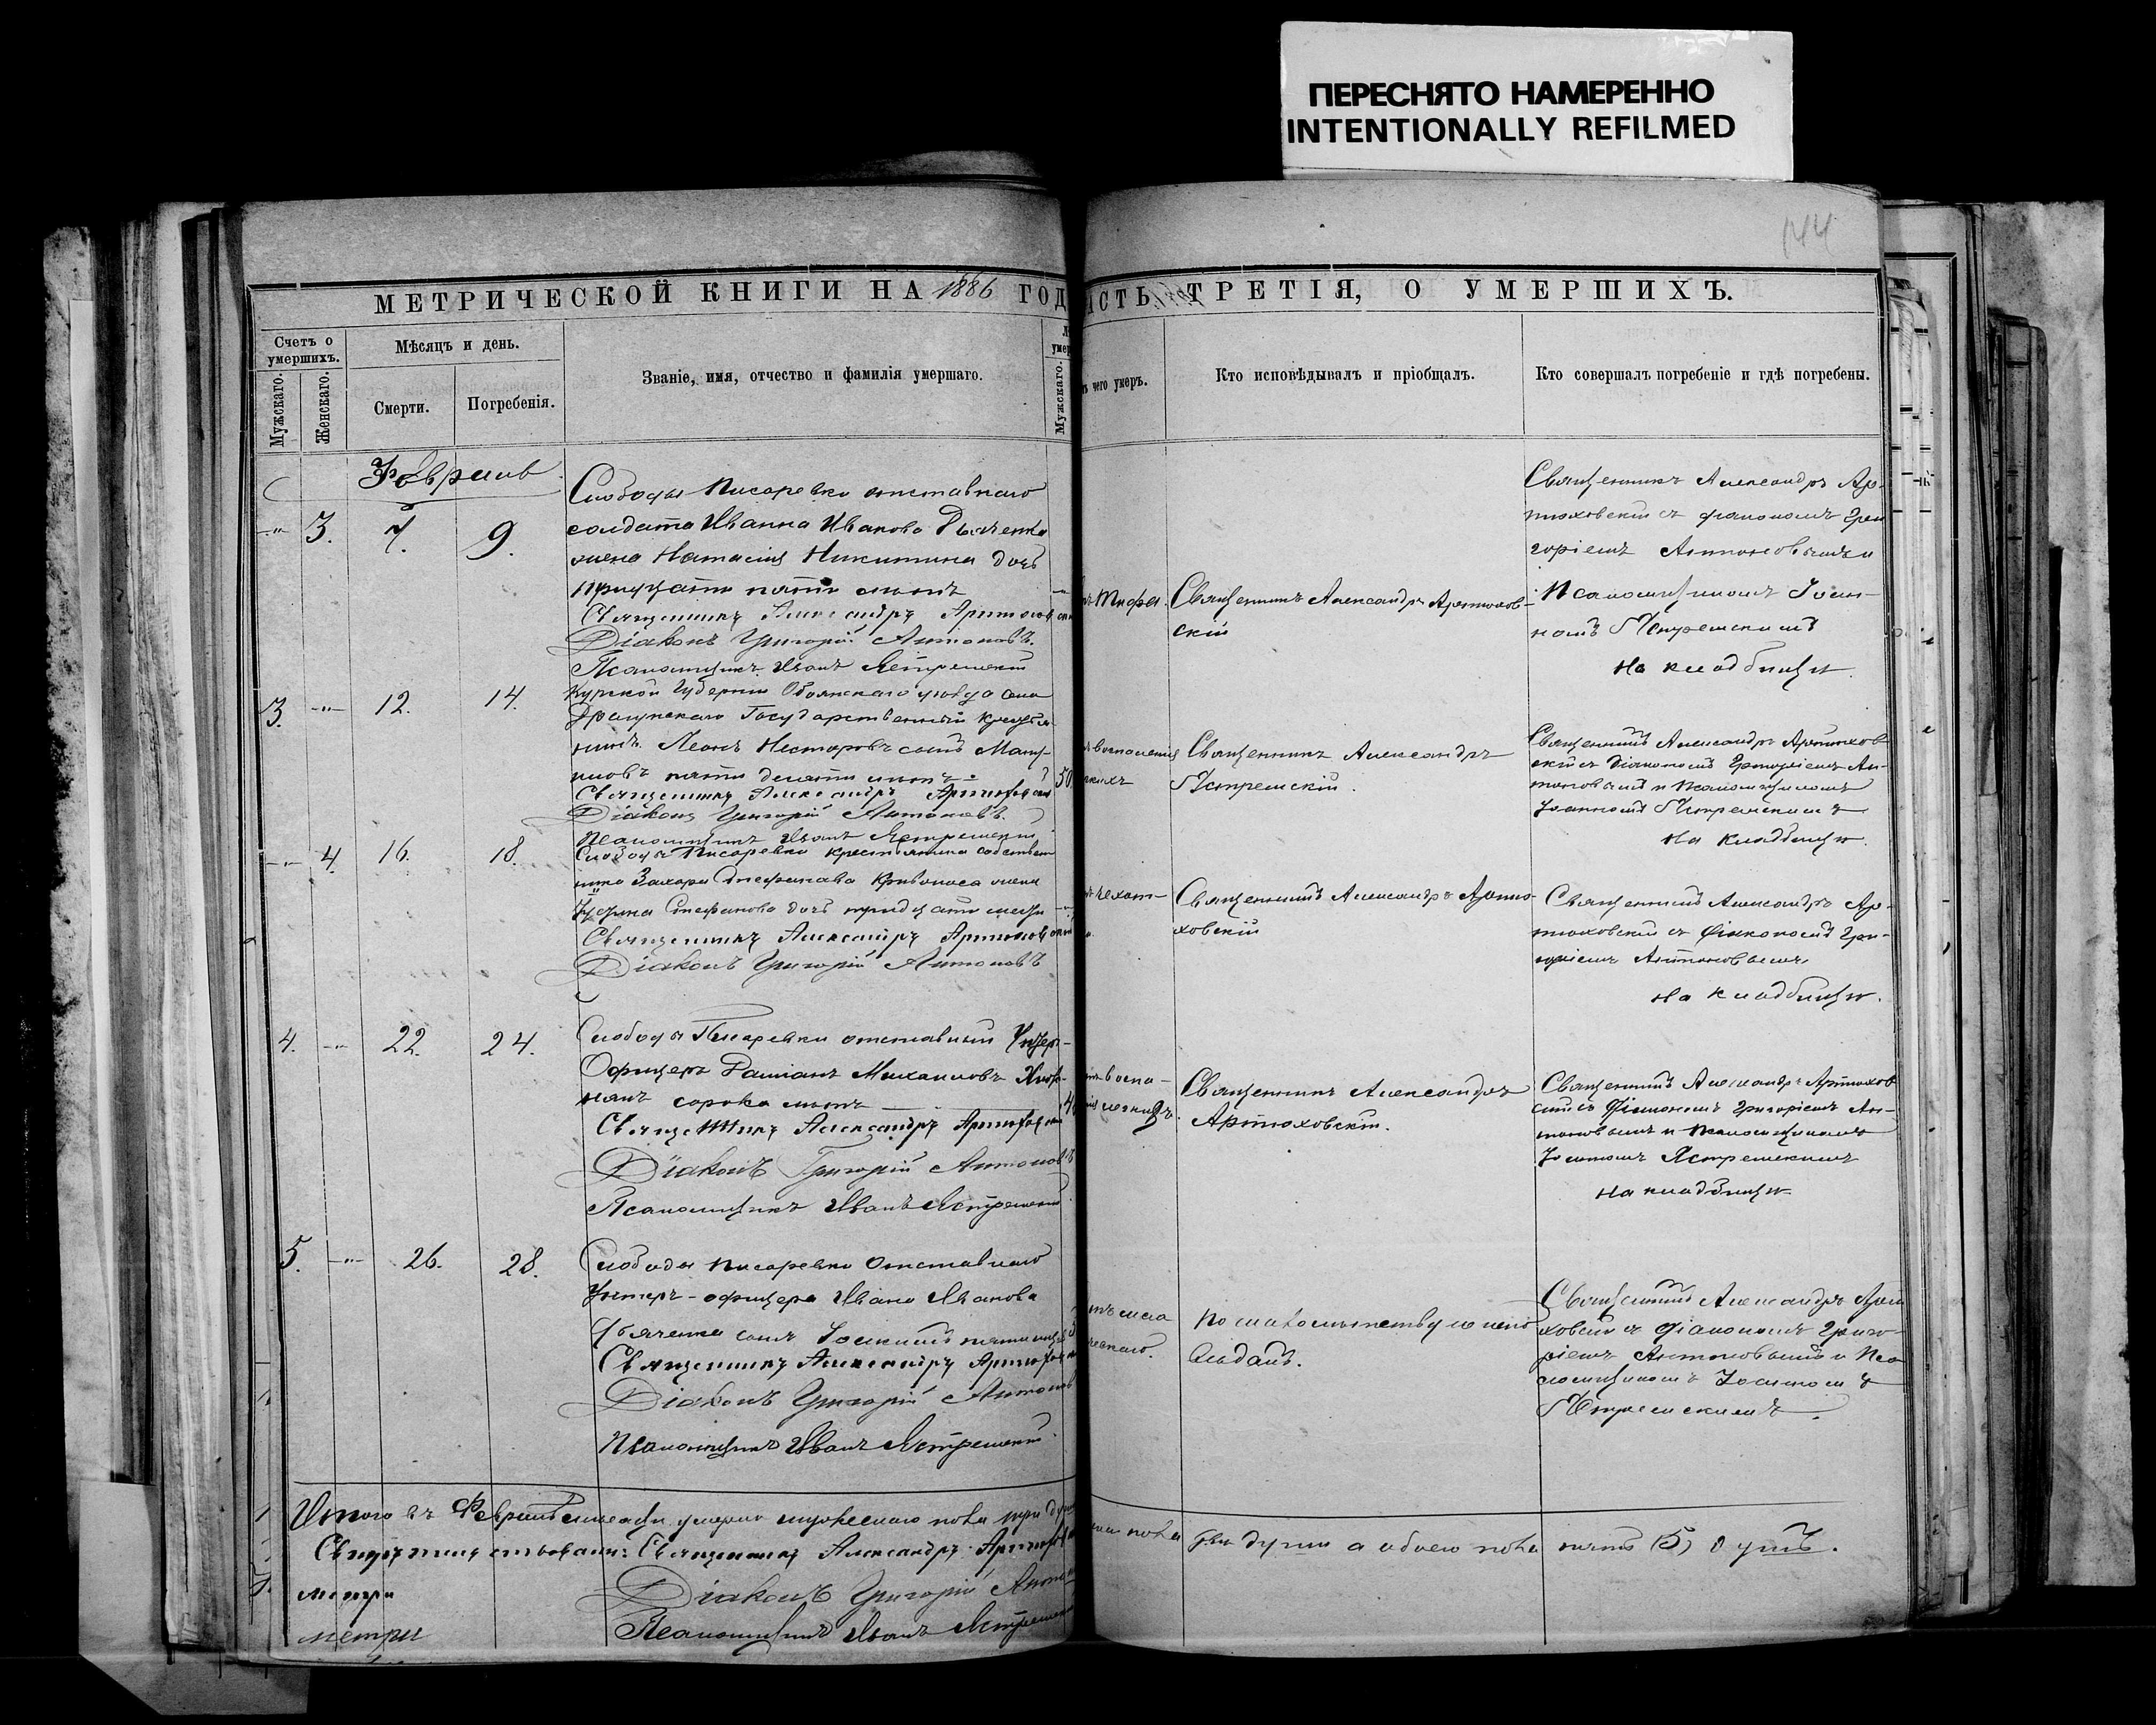 ПЕРЕСНЯТО НАМЕРЕННО
INTENTIONALLY REFILMED
144
МЕТРИЧЕСКОЙ КНИГИ НА 1886 ГОД
АСТЬ ТРЕТІЯ, О УМЕРШИХЪ.
Счетъ о умершихъ.
Мужскаго.
Женскаго.
Мѣсяцъ и день.
Смерти.
Погребенія.
Званіе, имя, отчество и фамилія умершаго.
Мужскаго.
чего умеръ.
Кто исповѣдывалъ и пріобщалъ.
Кто совершалъ погребеніе и гдѣ погребены.
Февраль
3. 7. 9.
Слободы Писаревки отставнаго
солдата Иванна Иванова Дьяченка
жена Натасія Никитина дочь
тридцати пяти лѣтъ
Священникъ Александръ Артюховскій
Діаконъ Григорій Антоновъ.
Псаломщикъ Иванъ Ястремскій
Тифа.
Священникъ Александръ Артюхов-
скій
Священникъ Александръ Ар-
тюховскій съ діакономъ Гри
горіемъ Антоновымъ и
Псаломщикомъ Іоан-
номъ Ястремскимъ
на кладбищѣ.
3. 12. 14.
Курской Губерніи Обоянскаго уѣзда села
Драгунскаго Государственный крестья
нинъ Леонъ Несторовъ сынъ
пяти десяти лѣтъ
50
Священникъ Александръ Артюховскій
Діаконъ Григорій Антоновъ.
Псаломщикъ Иванъ Ястремскій
воспаленія
Священникъ Александръ
Ястремскій.
Священникъ Александръ Артюхов
скій съ Діакономъ Григоріемъ Ан-
тоновымъ и Псаломщикомъ
Іоанномъ Ястремскимъ
на кладбищѣ.
4. 16. 18.
Слободы Писаревки крестьянина собствен
ника Захара Стефанова Кривоноса жена
Стефанова дочь тридцати
Священникъ Александръ Артюховскій
Діаконъ Григорій Антоновъ
чахот-
Священникъ Александръ Артю-
ховскій
Священникъ Александръ Ар-
тюховскій съ Діакономъ Гри-
горіемъ Антоновымъ
на кладбищѣ.
4. 22. 24.
Слободы Писаревки отставный Унтеръ-
Офицеръ Даміанъ Михаиловъ
сорока лѣтъ
Священникъ Александръ Артюховскій
Діаконъ Григорій Антоновъ
Псаломщикъ Иванъ Ястремскій
воспа-
легкихъ.
Священникъ Александръ
Артюховскій.
Священникъ Александръ Артюхов
скій съ Діакономъ Григоріемъ Ан-
тоновымъ и Псаломщикомъ
Іоанномъ Ястремскимъ
на кладбищѣ
5. 26. 28.
Слободы Писаревки Отставнаго
Унтеръ-офицера Ивана Иванова
Дьяченка сынъ Іоакимъ
Священникъ Александръ Артюховскій
Діаконъ Григорій Антоновъ
Псаломщикъ Иванъ Ястремскій.
По малолѣтству
Священникъ Александръ Артю
ховскій съ діакономъ Григо-
ріемъ Антоновымъ и Пса
ломщикомъ Іоанномъ
Ястремскимъ.
Итого въ Февралѣ мѣсяцѣ умерло мужескаго пола три души
пола двѣ души а обоего пола пять (5) душъ.
Священникъ Александръ Артюховскій
Діаконъ Григорій Антоновъ
Псаломщикъ Иванъ Ястремскій
метри
метри